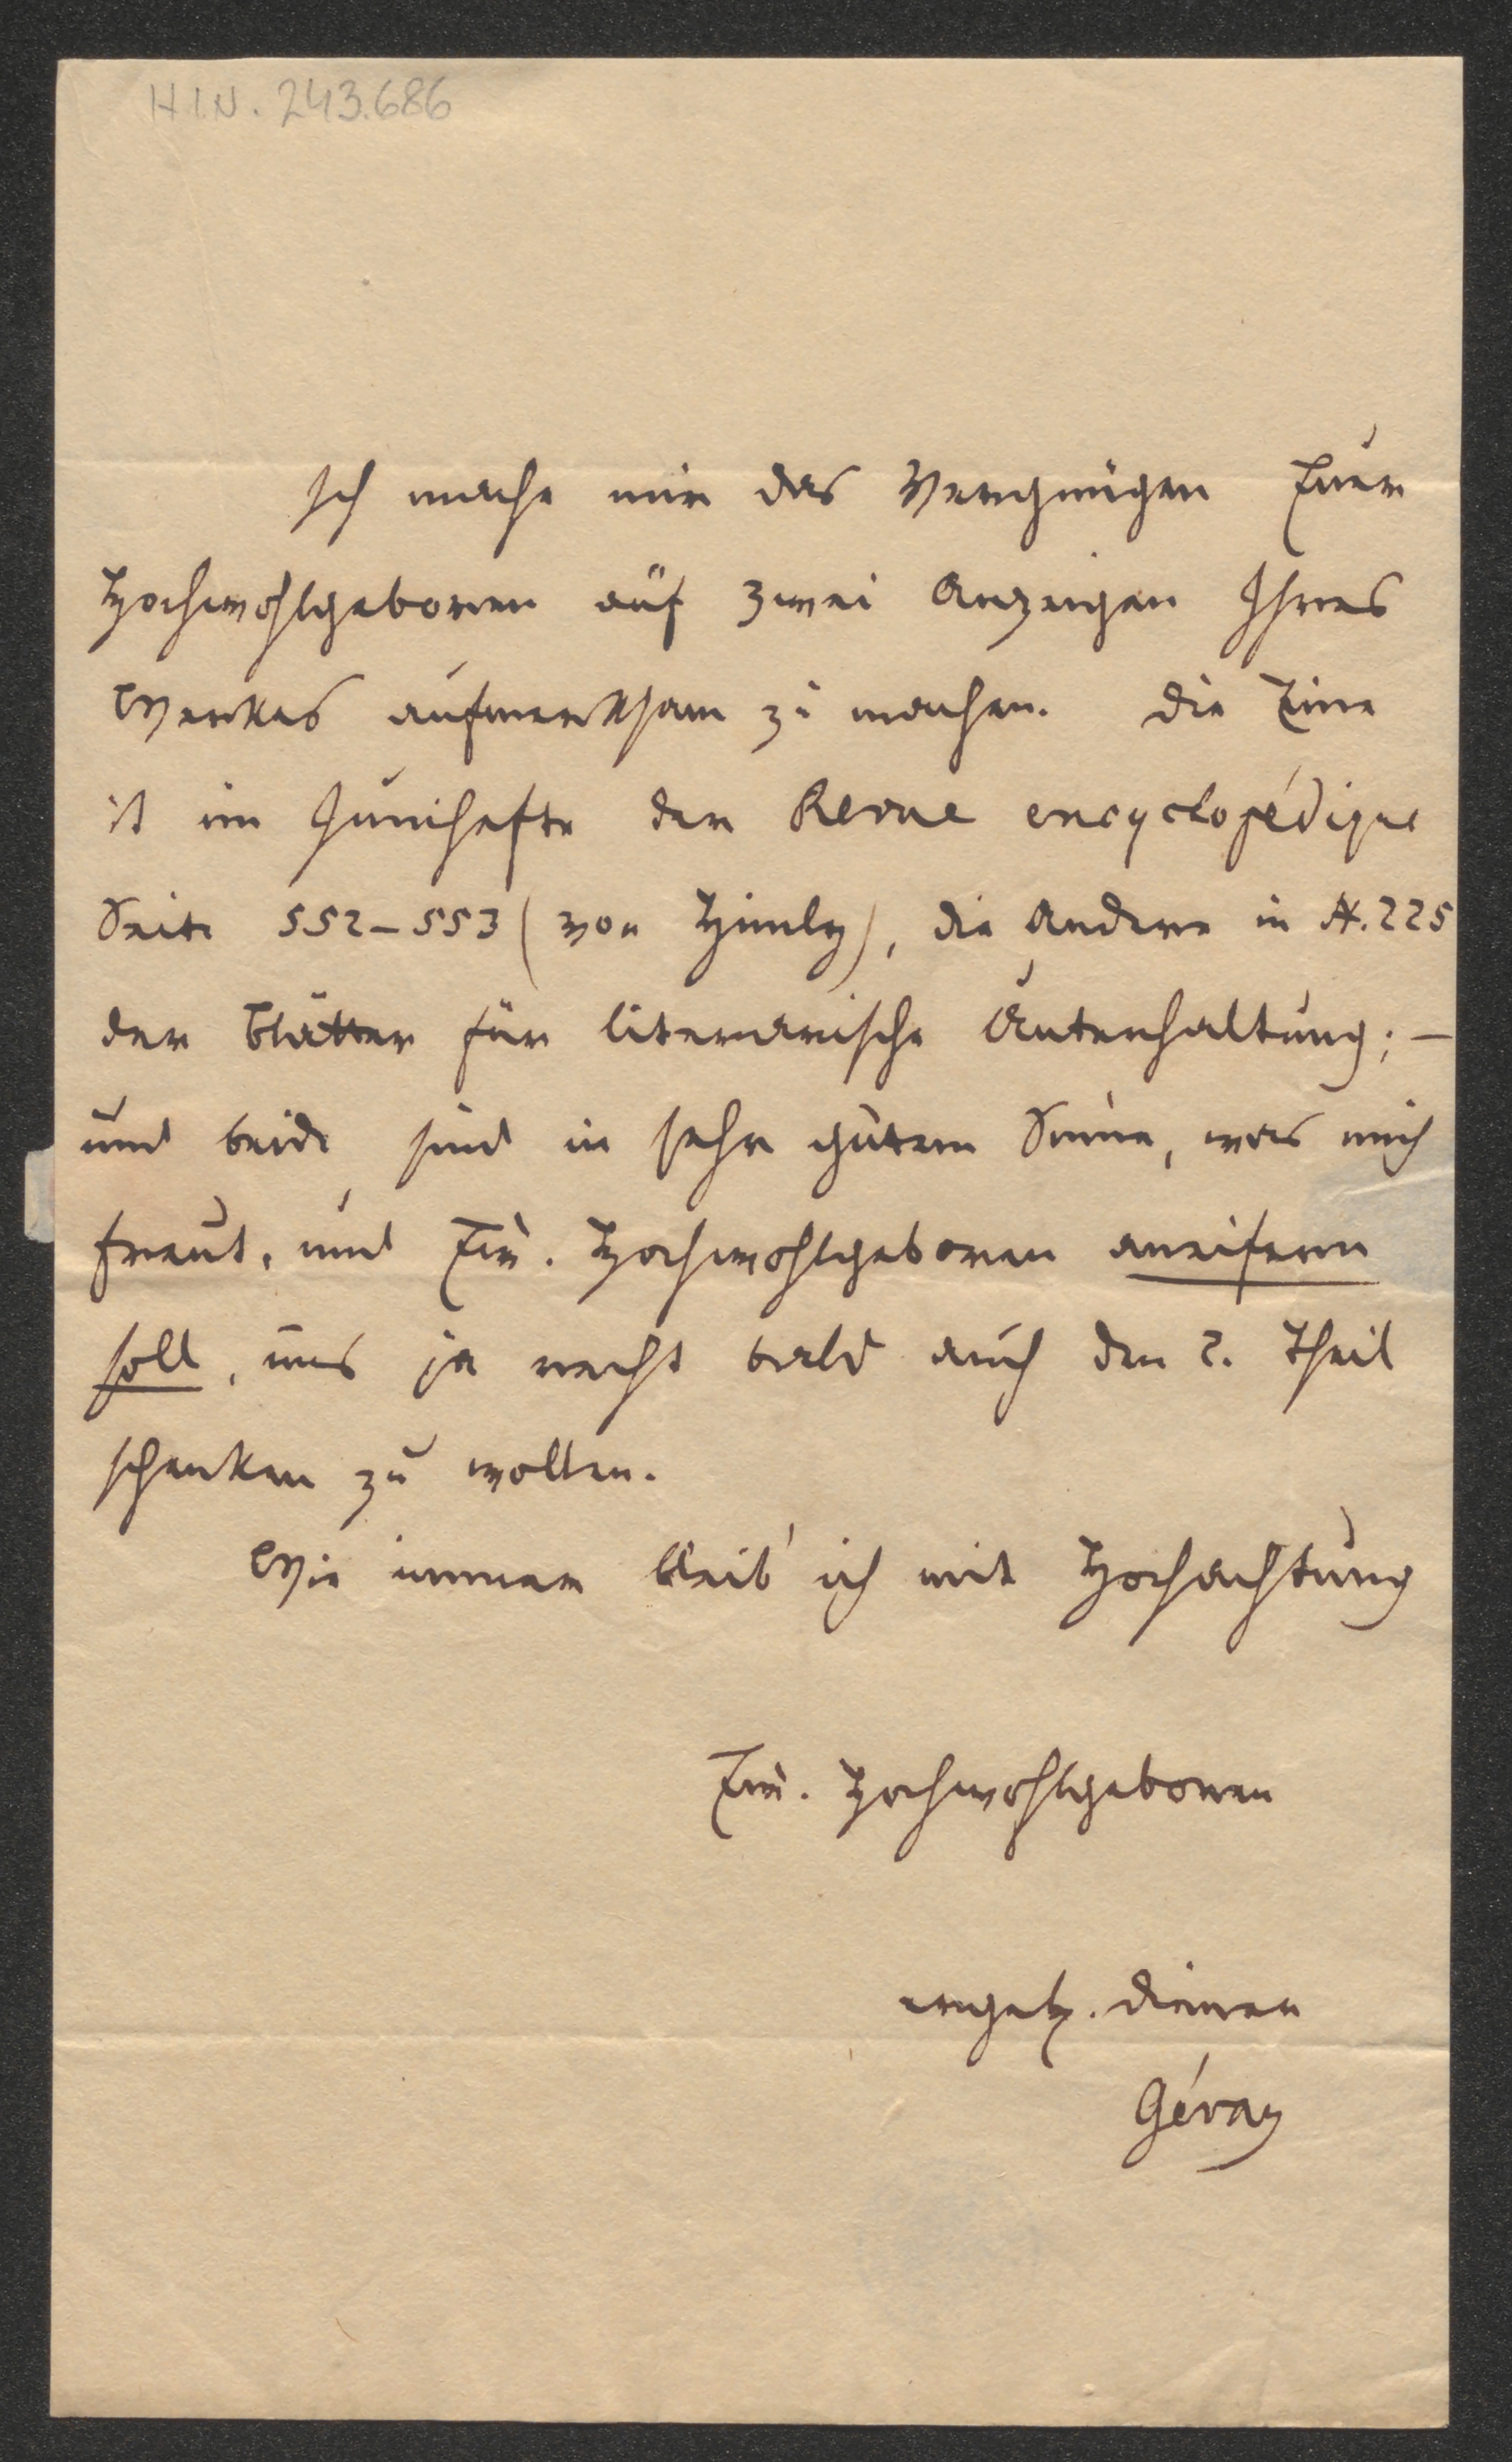 H.I.N. 243.686
Ich mache mir das Vergnügen Euer
Hochwohlgeboren auf zwei Anzeigen Ihres
Werkes aufmerksam zu machen. Die Eine
ist im Junihefte der Revue encyclopédique
Seite 552–553 (von Himly), die Andere in N. 225
der Blätter für literarische Unterhaltung; –
und beide sind in sehr gutem Sinne, was mich
freut, und Eu. Hochwohlgeboren aneifern
soll, uns ja recht bald auch den 2. Theil
schenken zu wollen.
Wie immer bleib' ich mit Hochachtung
Eu. Hochwohlgeboren
ergeb. Diener
Gévay